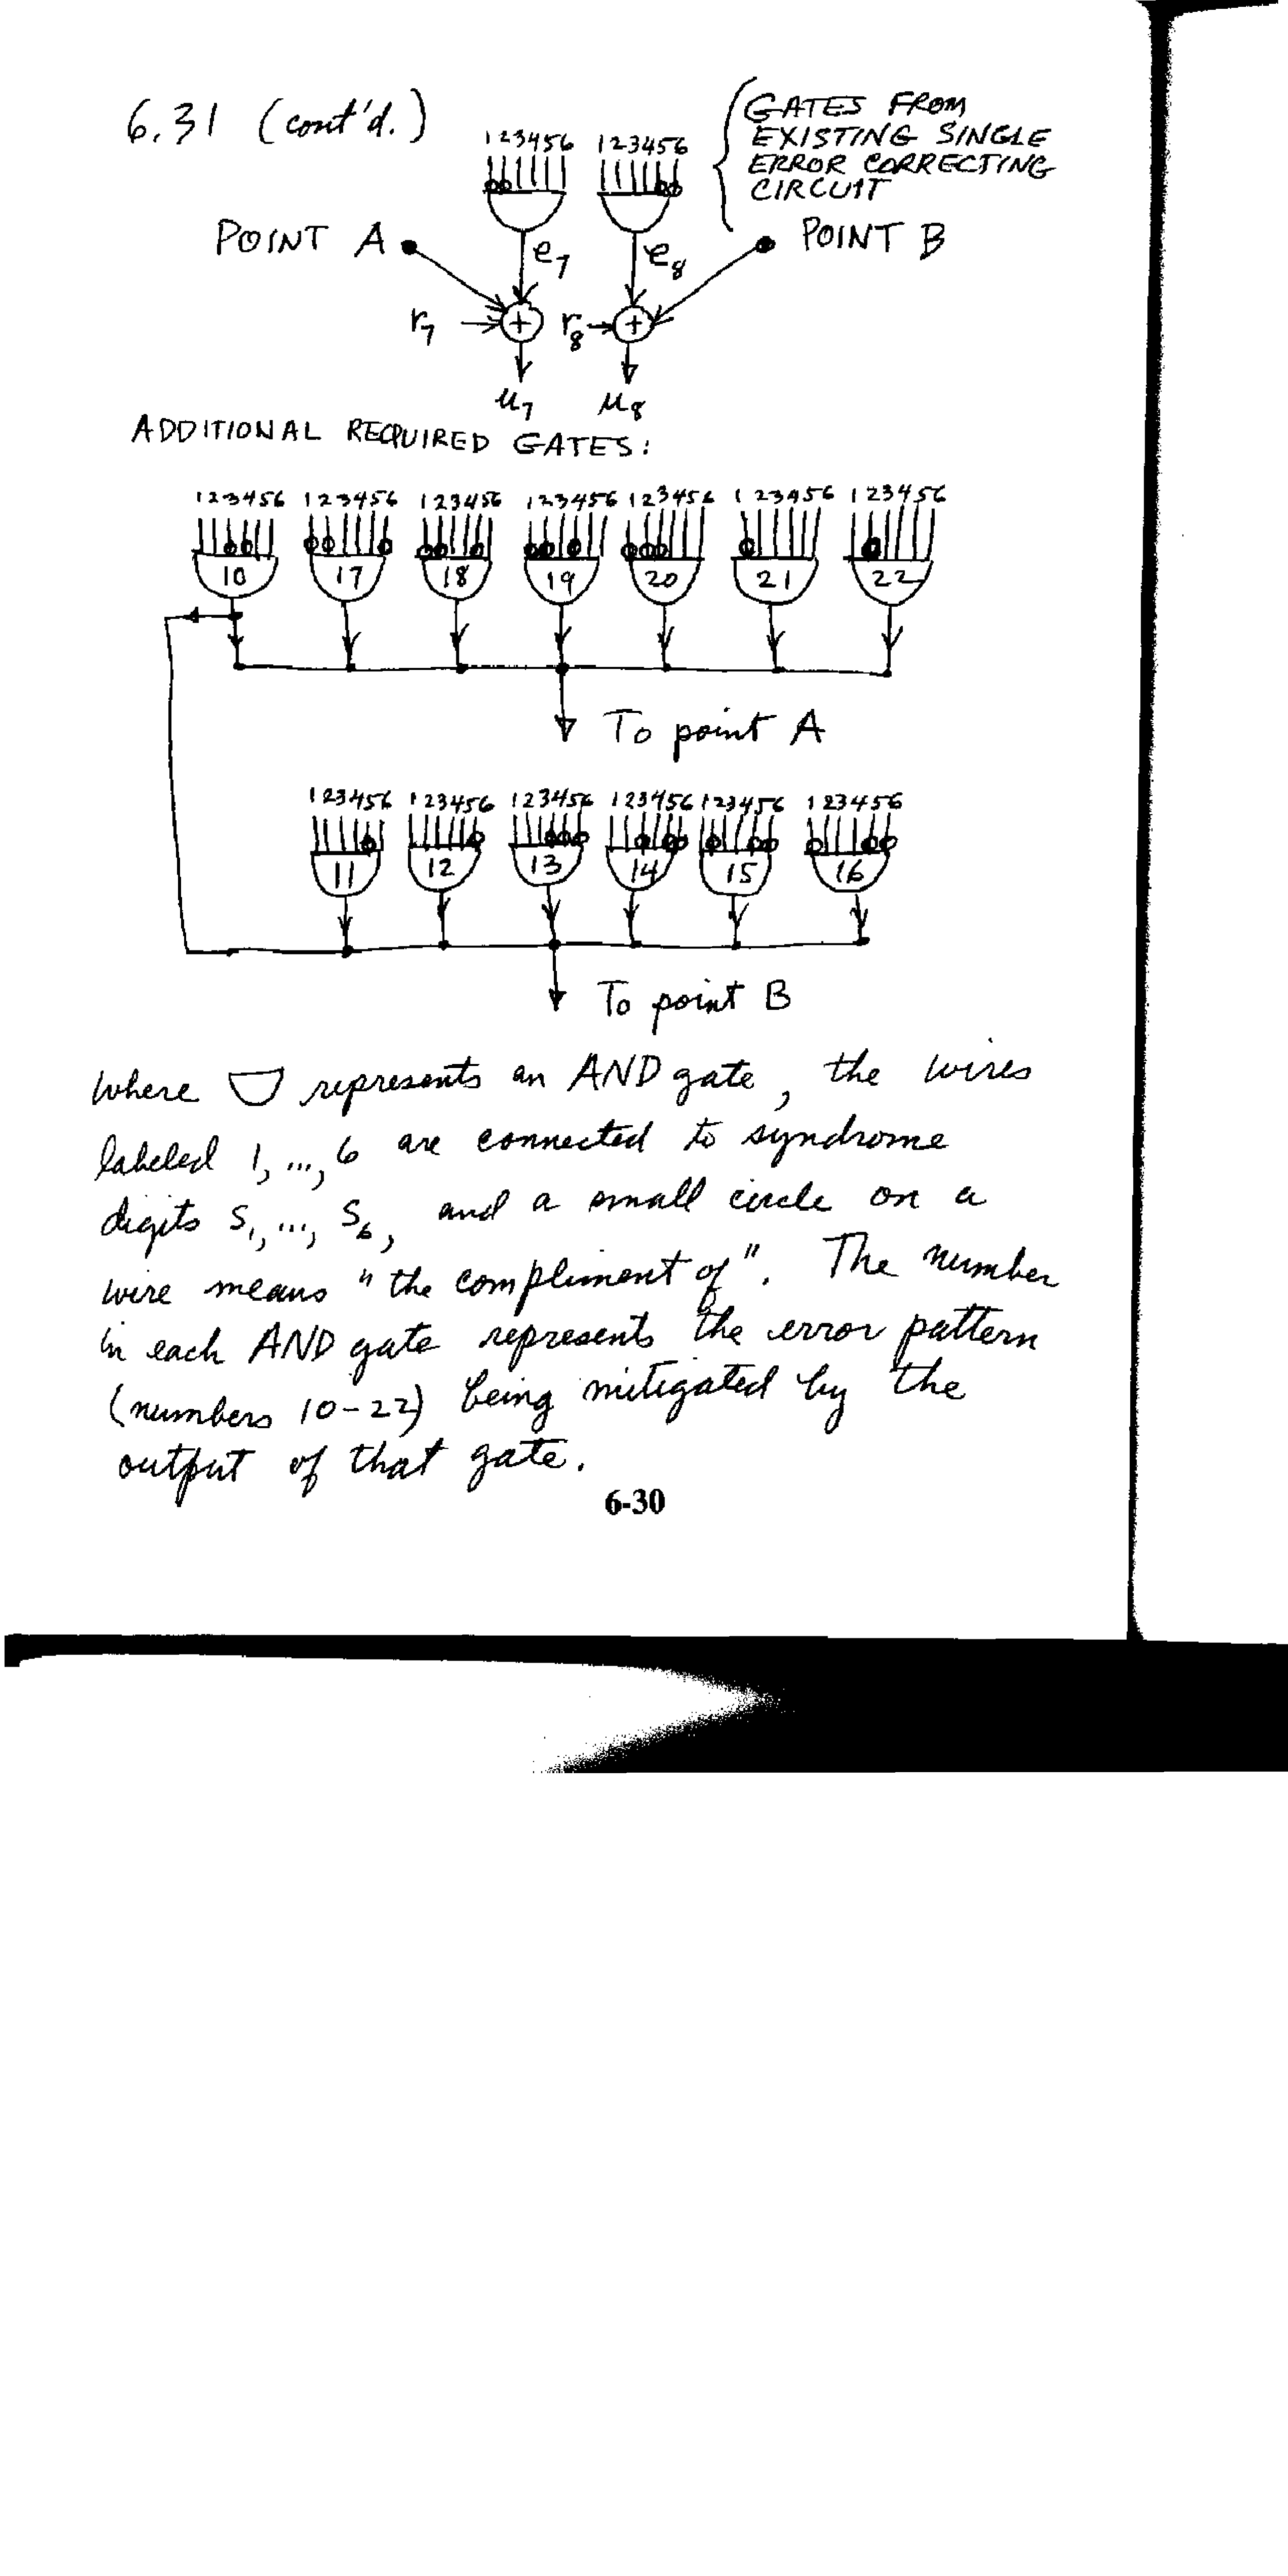 6.31 (cont'd.)
GATES FROM
EXISTING SINGLE
ERROR CORRECTING
CIRCUIT
123456 123456
POINT A e₇ e₈ POINT B
r₇ + r₈ +
u₇ u₈
ADDITIONAL REQUIRED GATES:
123456 123456 123456 123456 123456 123456 123456
10 17 18 19 20 21 22
To point A
123456 123456 123456 123456 123456 123456
11 12 13 14 15 16
To point B
where represents an AND gate, the wires
labeled 1, ..., 6 are connected to syndrome
digits S₁, ..., S₆, and a small circle on a
wire means "the compliment of". The number
in each AND gate represents the error pattern
(numbers 10-22) being mitigated by the
output of that gate.
6-30